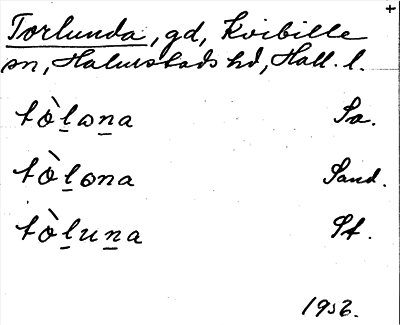 +
Torlunda, gd, Kvibille
sn, Halmstads hd, Hall. l.
tò̀l̲ωn̲a Sa.
tò̀l̲ωna Sand.
tò̀l̲un̲a St.
1952.